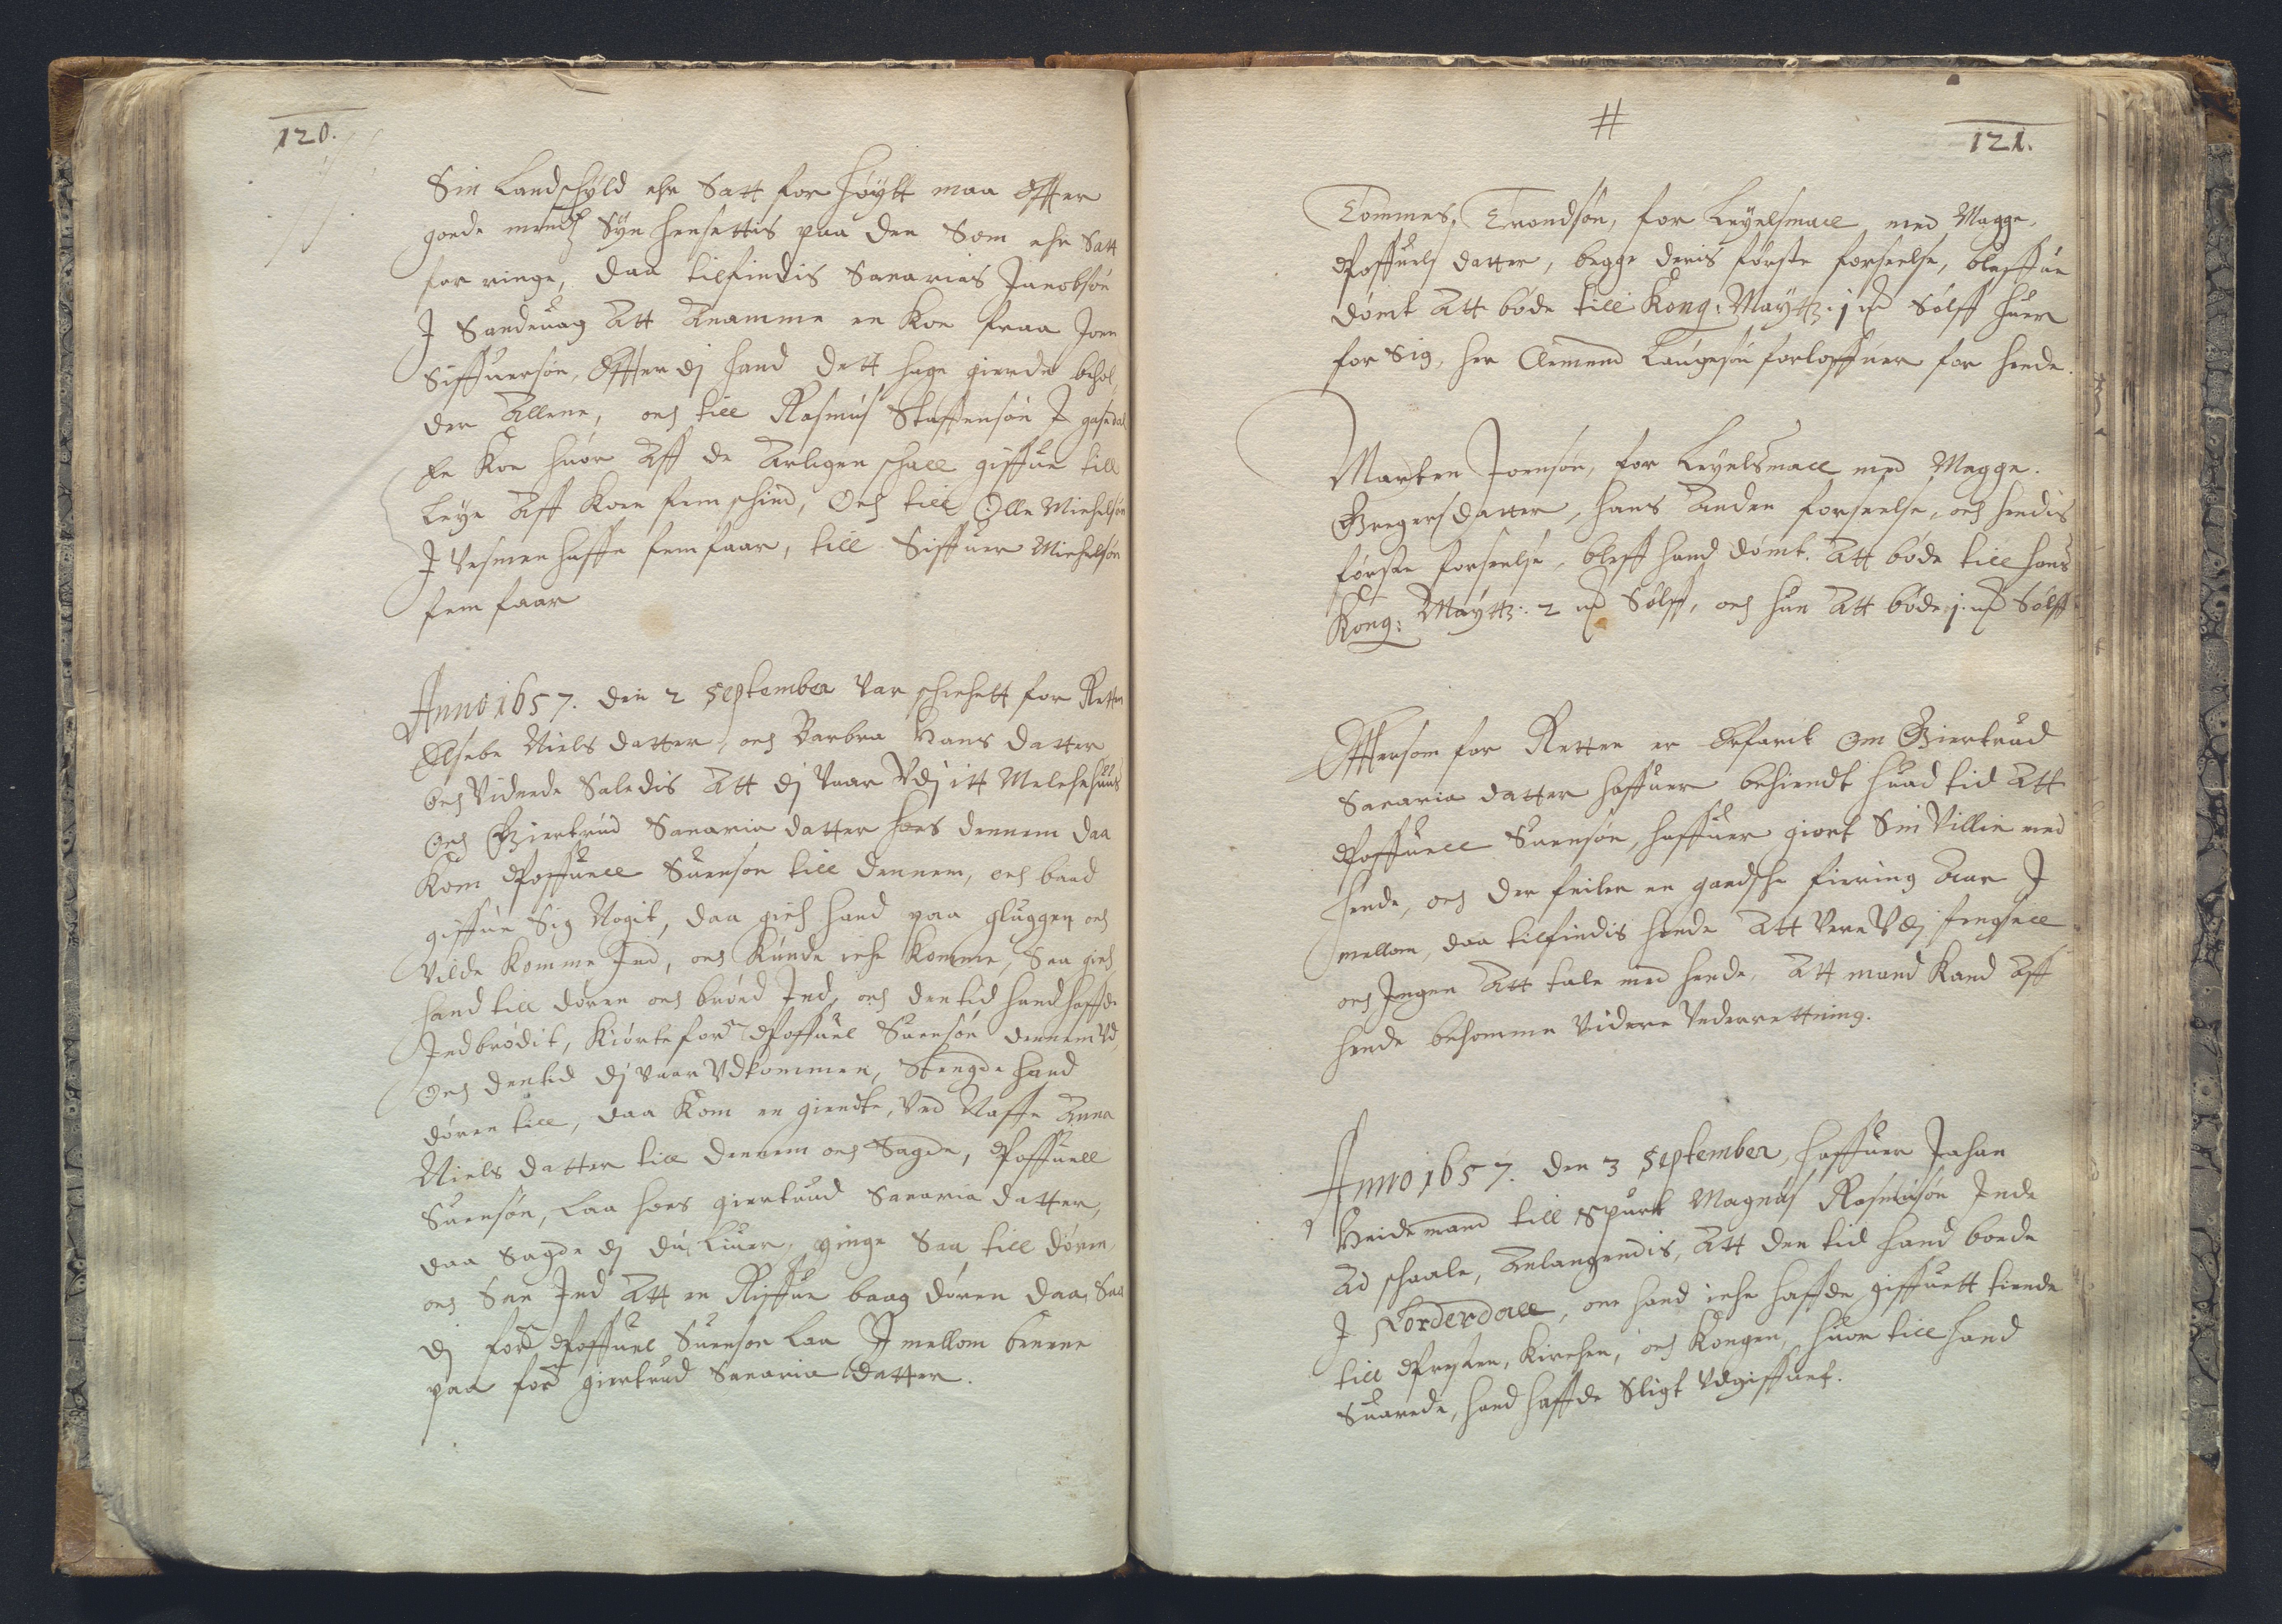 120.
Sin Landschyld ehr Satt for høytt maa Effter
goede mends Syn hensettis paa den Som ehr Satt
for ringe, daa tilfindis Sacarias Jacobsøn
J Sandeuag Att Anamme en Koe fraa Joen
Siffuersøn, Effter dj hand dett hage gierde behol,
der Allene, och till Rasmus Staffensøn J gasedal
En Koe huor Aff de Arligen schall giffue till
Leye Aff Koen fem schind, Och till Olle Michelsøn
J Vesmenhaffn fem faar, till Siffuer Michelsøn
fem faar
Anno 1657. den 2 September Var schichett for Retten
Elsebe Niels datter, och Barbra Hans datter
och Vidnede Saledis Att dj Vaar Vdj itt Melchehuus
Och Giertrud Sacaria datter hoes dennem daa
Kom Poffuell Suenson till dennem, och baad
giffue Sig Nogit, daa gich hand paa gluggen och
Vilde Komme Ind, och Kunde iche Komme, Saa gich
hand till døren och brød Ind, och den tid hand haffde
Indbrødit, Kiørte for: Poffuel Suensøn dennem Vd,
Och den tid dj Vaar Vdkommen, Stengde hand
døren till, daa Kom en giendte, Ved Naffn Anna
Niels datter till dennem och Sagde, Poffuell
Suensøn, Laa hoes giertrud Sacaria datter,
daa Sagde dj du Liuer, ginge Saa till døren
och Saa Ind Att en Riffue baag døren daa, Saa
dj for: Poffuel Suenson laa J mellom benene
paa for: giertrud Sacaria datter.
#
121.
Tommes Trondsøn, for Leyelsmaell med Magge.
Poffuels datter, begge deris første forseelse, bleffue
dømt Att bøde till Kong: Maytt: 1 mk Sølff huer
for Sig, her Clemend Laugesøn forloffuer for hende.
Marten Joensøn, for Leyelsmaell med Magge.
Gregersdatter, hans Anden forseelse, och hendis
første forseelse, bleff hand dømt Att bøde till hans
Kong: Maytt: 2 mk Sølff, och hun Att bøde 1. mk Sølff
Effttersom for Retten er Erfarit Om Giertrud
Sacaria datter haffuer bekiendt huad tid Att
Poffuell Suensøn, haffuer giort Sin Villie med
hende, och der feiler en gandsche fierring Aar J
mellom, daa tilfindis hende Att Vere Vdj fengsell
och Ingen Att tale med hende, Att mand Kand Aff
hende bekomme Videre Vnderrettning.
Anno 1657. den 3 September, haffuer Johan
Heidemand till Spurt Magnus Rasmusøn Inde
Ad schaale, Anlangendis, Att den tid hand boede
J Norderdall, om hand iche haffde giffuett tiende
till Presten, Kirchen, och Kongen, huor till hand
Suarede, hand haffde Sligt Vdgiffuet.